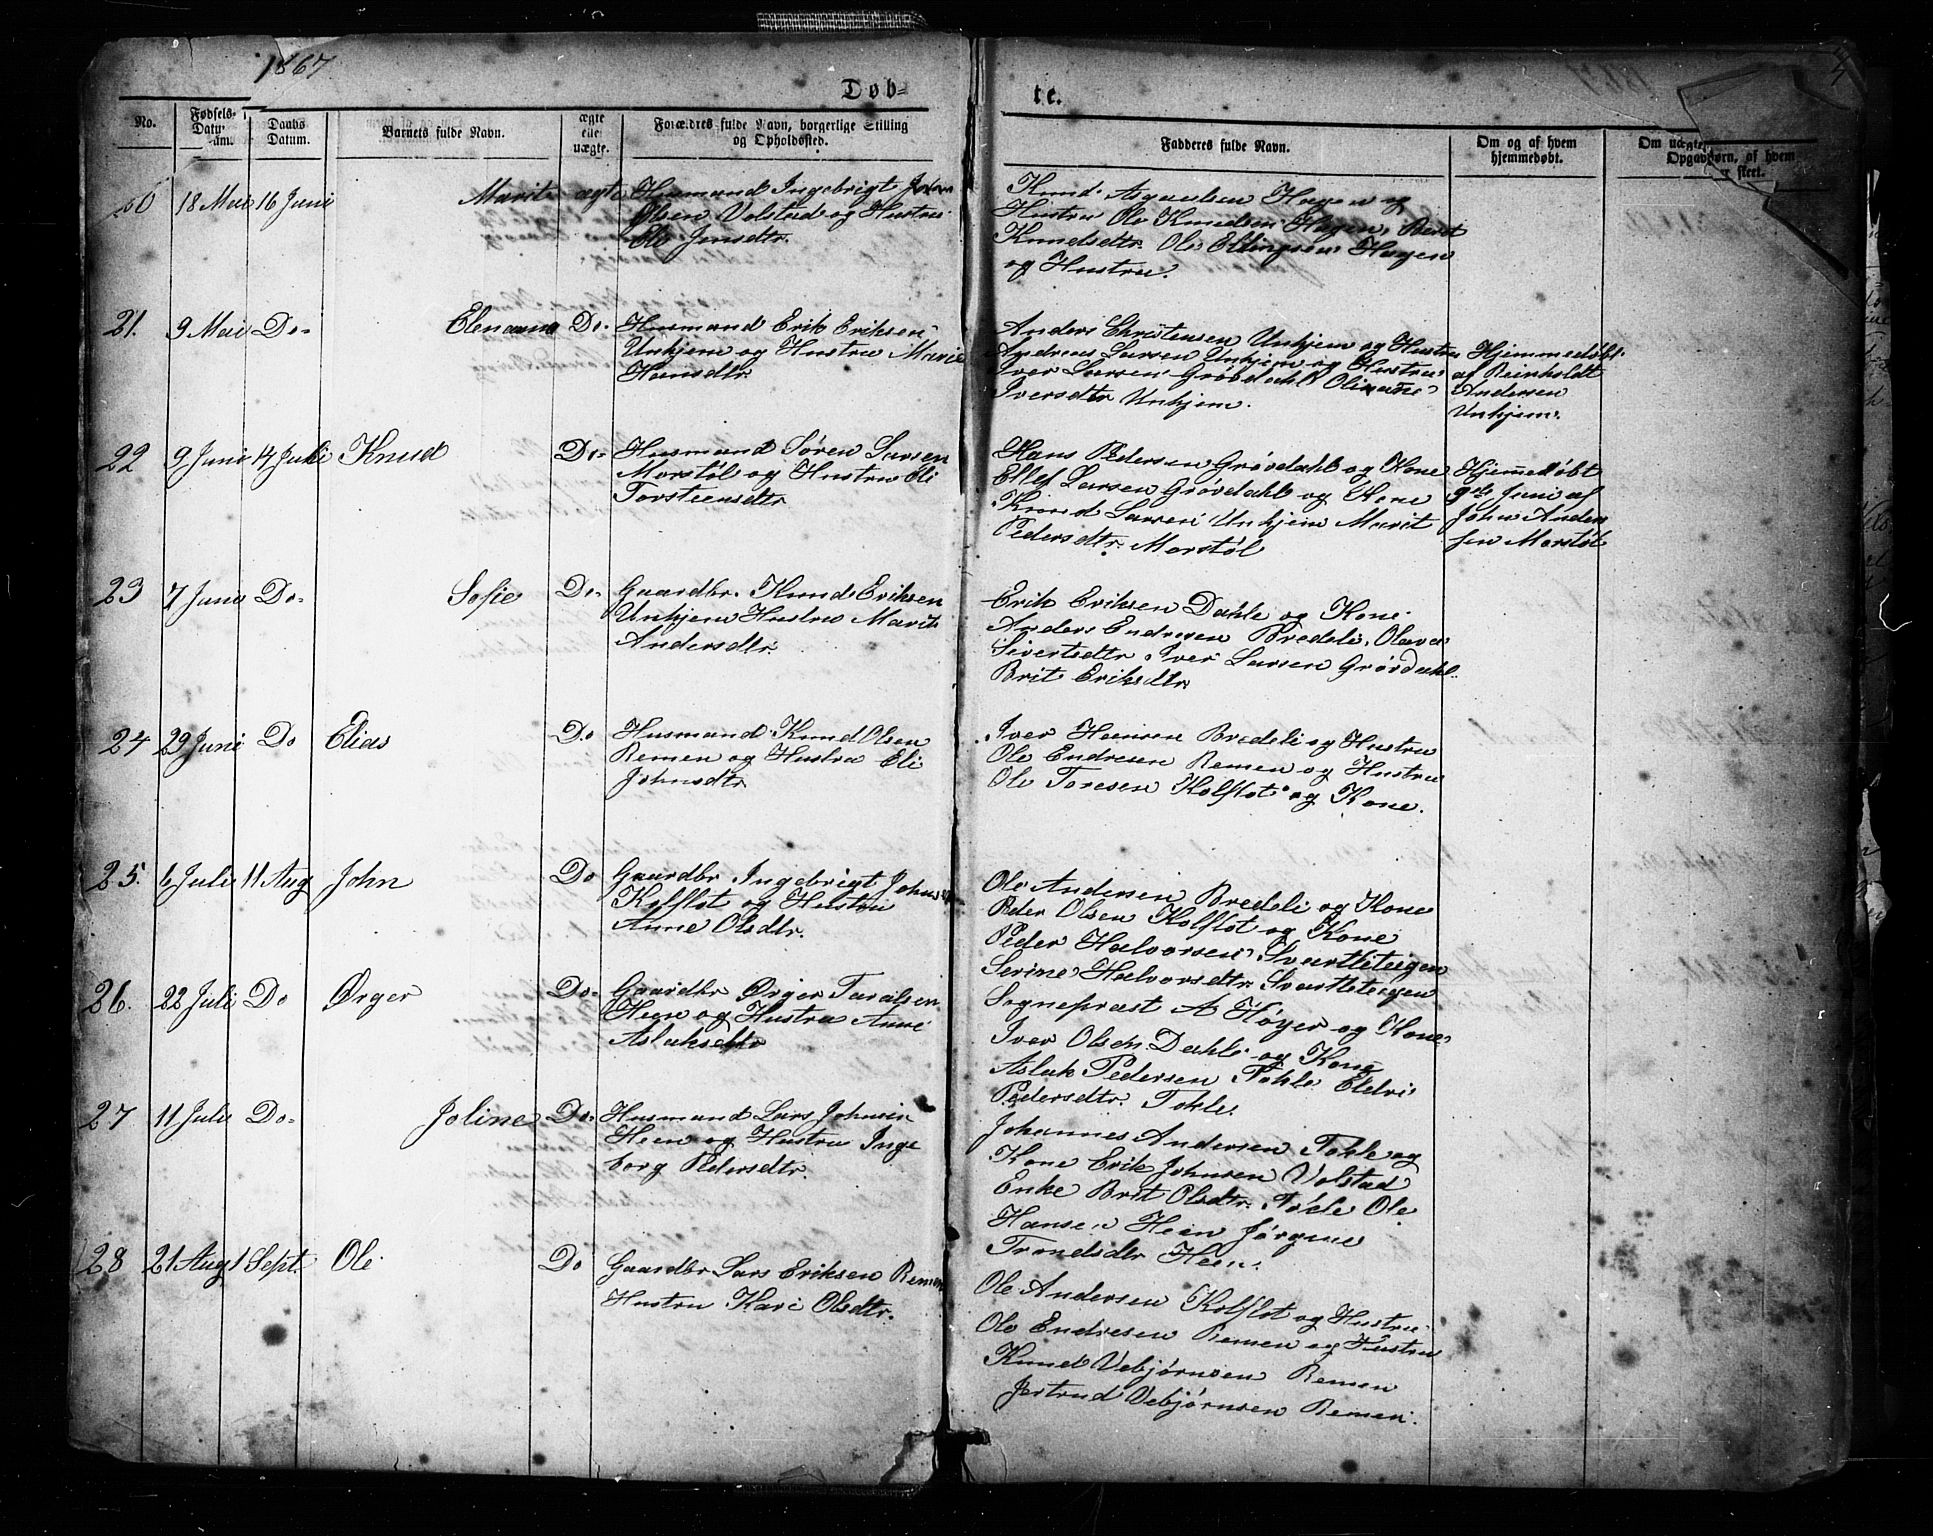 1867
4
Døb=
te.
No.
Fødsels-
Datum.
Daabs
Datum.
Barnets fulde Navn.
ægte
eller
uægte.
Forældres fulde Navn, borgerlige Stilling
og Opholdssted.
Fadderes fulde Navn.
Om og af hvem
hjemmedøbt.
Om uægte
Opgav
ørn, af hvem
skeet.
20 18 Mai 16 Juni Marit ægte
Husmand Ingebrigt John
Olsen Volstad og Hustru
Eli Jensdtr.
Knud Aslaksen Hagen og
Hustru Ole Knudsen Hagen, Berit
Knudsdtr. Ole Ellingsen Hagen
og Hustru.
21. 9 Mai Do- Elenanna Do-
Husmand Erik Eriksen
Unhjem og Hustru Marie
Hansdtr.
Anders Christensen Unhjem og Hustru
Andreas Larsen Unhjem og Hustru
Iver Larsen Grøvdahl Olinane
Iversdtr Unhjem.
Hjemmedøbt
af Reinholdt
Andersen
Unhjem.
22 9 Juni 14 Juli Knud Do-
Husmand Søren Larsen
Morstøl og Hustru Eli
Torsteensdtr.
Hans Pedersen Grøvdahl og Kone
Ellef Larsen Grøvdahl og Kone
Knud Larsen Unhjem Marit
Pedersdtr. Morstøl
Hjemmedøbt
9de Juni af
John Ander
sen Morstøl
23 7 Juni Do- Sofie Do-
Gaardbr. Knud Eriksen
Unhjem Hustru Marit
Andersdtr.
Erik Eriksen Dahle og Kone
Anders Endresen Bredeli, Olava
Sivertsdtr. Iver Larsen Grøvdahl
Brit Eriksdtr.
24 29 Juni Do Elias Do
Husmand Knud Olsen
Remen og Hustru Eli
Johnsdtr.
Iver Hansen Bredeli og Hustru
Ole Endresen Remen og Hustru
Ole Toresen Kolflot og Kone.
25. 6 Juli 11 Aug John Do
Gaardbr Ingebrigt Johnsen
Kolflot og Hustru
Anne Olsdtr.
Ole Andersen Bredeli og Kone
Peder Olsen Kolflot og Kone
Peder Halvorsen Svartleteigen
Serine Halvorsdtr. Svartleteigen
26. 22 Juli Do Ørger Do-
Gaardbr Ørger Taralsen
Heen og Hustru Anne
Aslaksdtr
Sognepræst A Høyer og Kone
Iver Olsen Dahle og Kone
Aslak Pedersen Tokle Eldri
Pedersdtr. Tokle
27 11 Juli Do- Joline Do-
Husmand Lars Johnsen
Heen og Hustru Inge
borg Pedersdtr.
Johannes Andersen Tokle og
Kone Erik Johnsen Volstad
Enke Brit Olsdtr. Tokle Ole
Hansen Heen Jørgine
Trondsdtr Heen.
28 21 Aug 1 Sept. Ole Do
Gaardbr Lars Eriksen Remen
Hustru Kari Olsdtr.
Ole Andersen Kolflot og Hustru
Ole Endresen Remen og Hustru
Knud Vebjørnsen Remen
Jertrud Vebjørnsen Remen.